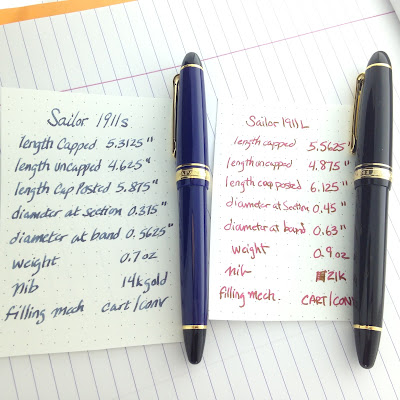 Sailor 1911s
length Capped 5.3125"
length uncapped 4.625"
length Cap Posted 5.875"
diameter at section 0.375"
diameter at band 0.5625"
weight 0.7 oz
nib 14k gold
filling mech cart/conv
Sailor 1911L
length capped 5.5625"
length uncapped 4.875"
length cap posted 6.125"
diameter at Section 0.45"
diameter at band 0.63"
weight 0.9 oz
nib 21K
filling mech. CART/CONV